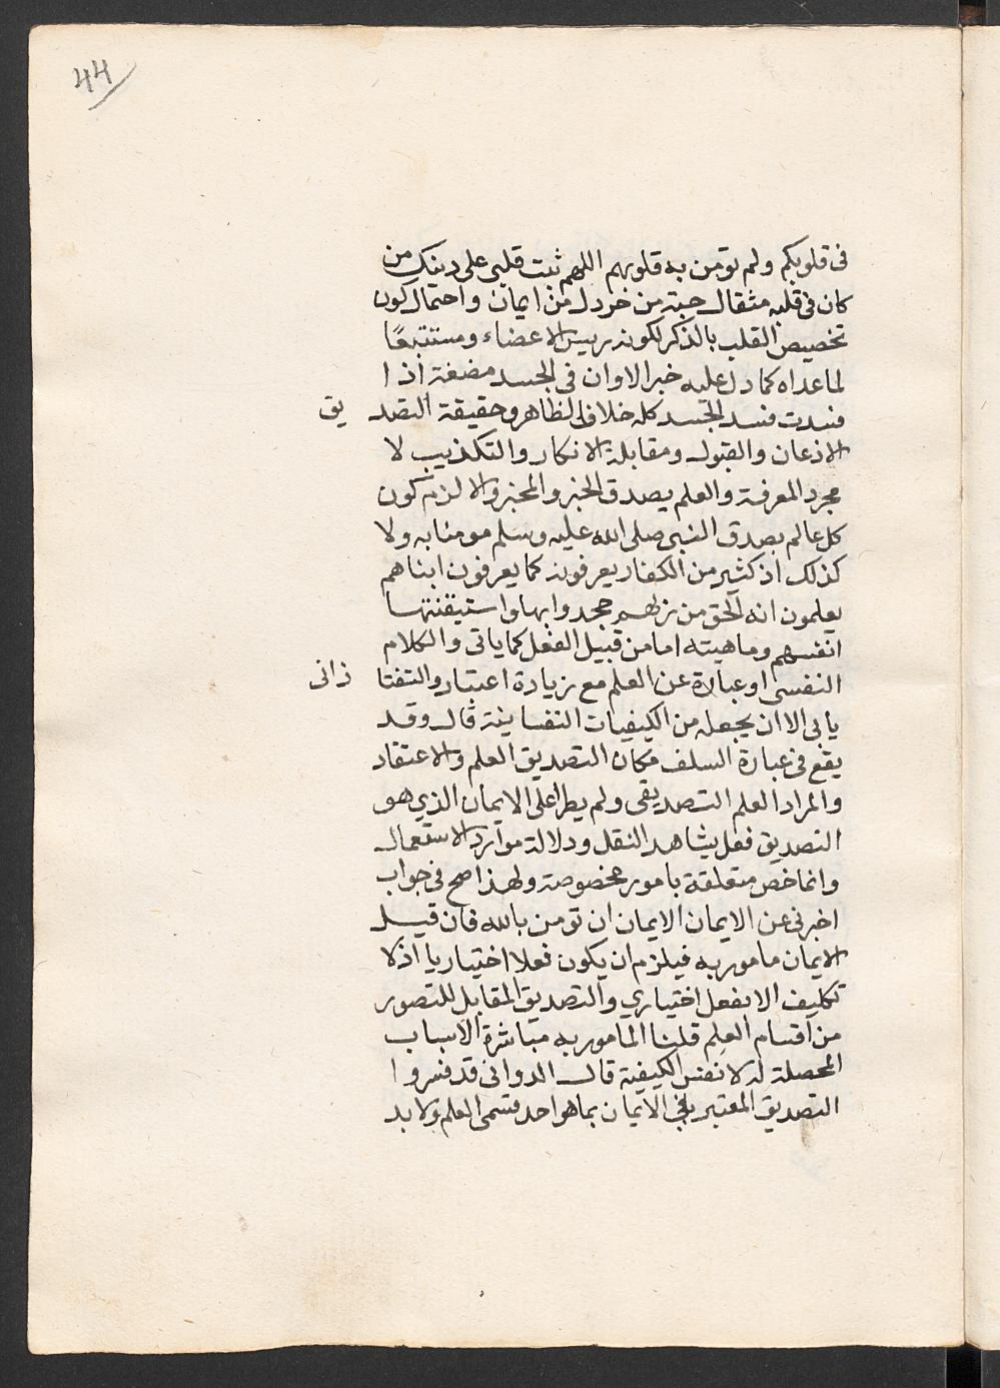 44
فى قلوبكم ولم تومن به قلوبهم اللهم ثبت قلبى على دينك من
كان فى قلبه مثقال حبة من خردل من ايمان واحتمال كون
تخصيص القلب بالذكر لكونه ريس الاعضاء ومستتبعًا
لما عداه كما دل عليه خبر الا وان فى الجسد مضغة اذا
فسدت فسد الجسد كله خلاف الظاهر وحقيقة التصد يق
الاذعان والقبول ومقابلة الانكار والتكذيب لا
مجرد المعرفة والعلم بصدق الخبر والمخبر والا لزم كون
كل عالم بصدق النبى صلى الله عليه وسلم مومنا به ولا
كذلك اذ كثير من الكفار يعرفونه كما يعرفون ابناهم
يعلمون انه الحق من ربهم جحدوا بها واستيقنتها
انفسهم وماهيته اما من قبيل الفعل كما ياتى والكلام
النفسى او عبارة عن العلم مع زيادة اعتبار والتفتا زانى
يابى الا ان يجعله من الكيفيات النفسانية قال وقد
يقع فى عبارة السلف مكان التصديق العلم والاعتقاد
والمراد العلم التصديقى ولم يطرا على الايمان الذي هو
التصديق فعل يشاهد النقل ودلالة موارد الاستعمال
وانما خص متعلقة بامور مخصوصة ولهذا صح فى جواب
اخبرنى عن الايمان الايمان ان تومن بالله فان قيل
الايمان مامور به فيلزم ان يكون فعلا اختياريا اذ لا
تكليف الا بفعل اختياري والتصديق المقابل للتصور
من اقسام العلم قلنا المامور به مباشرة الاسباب
المحصلة له لا نفس الكيفية قال الدوانى قد فسروا
التصديق المعتبر فى الايمان بما هو احد قسمى العلم ولا بد